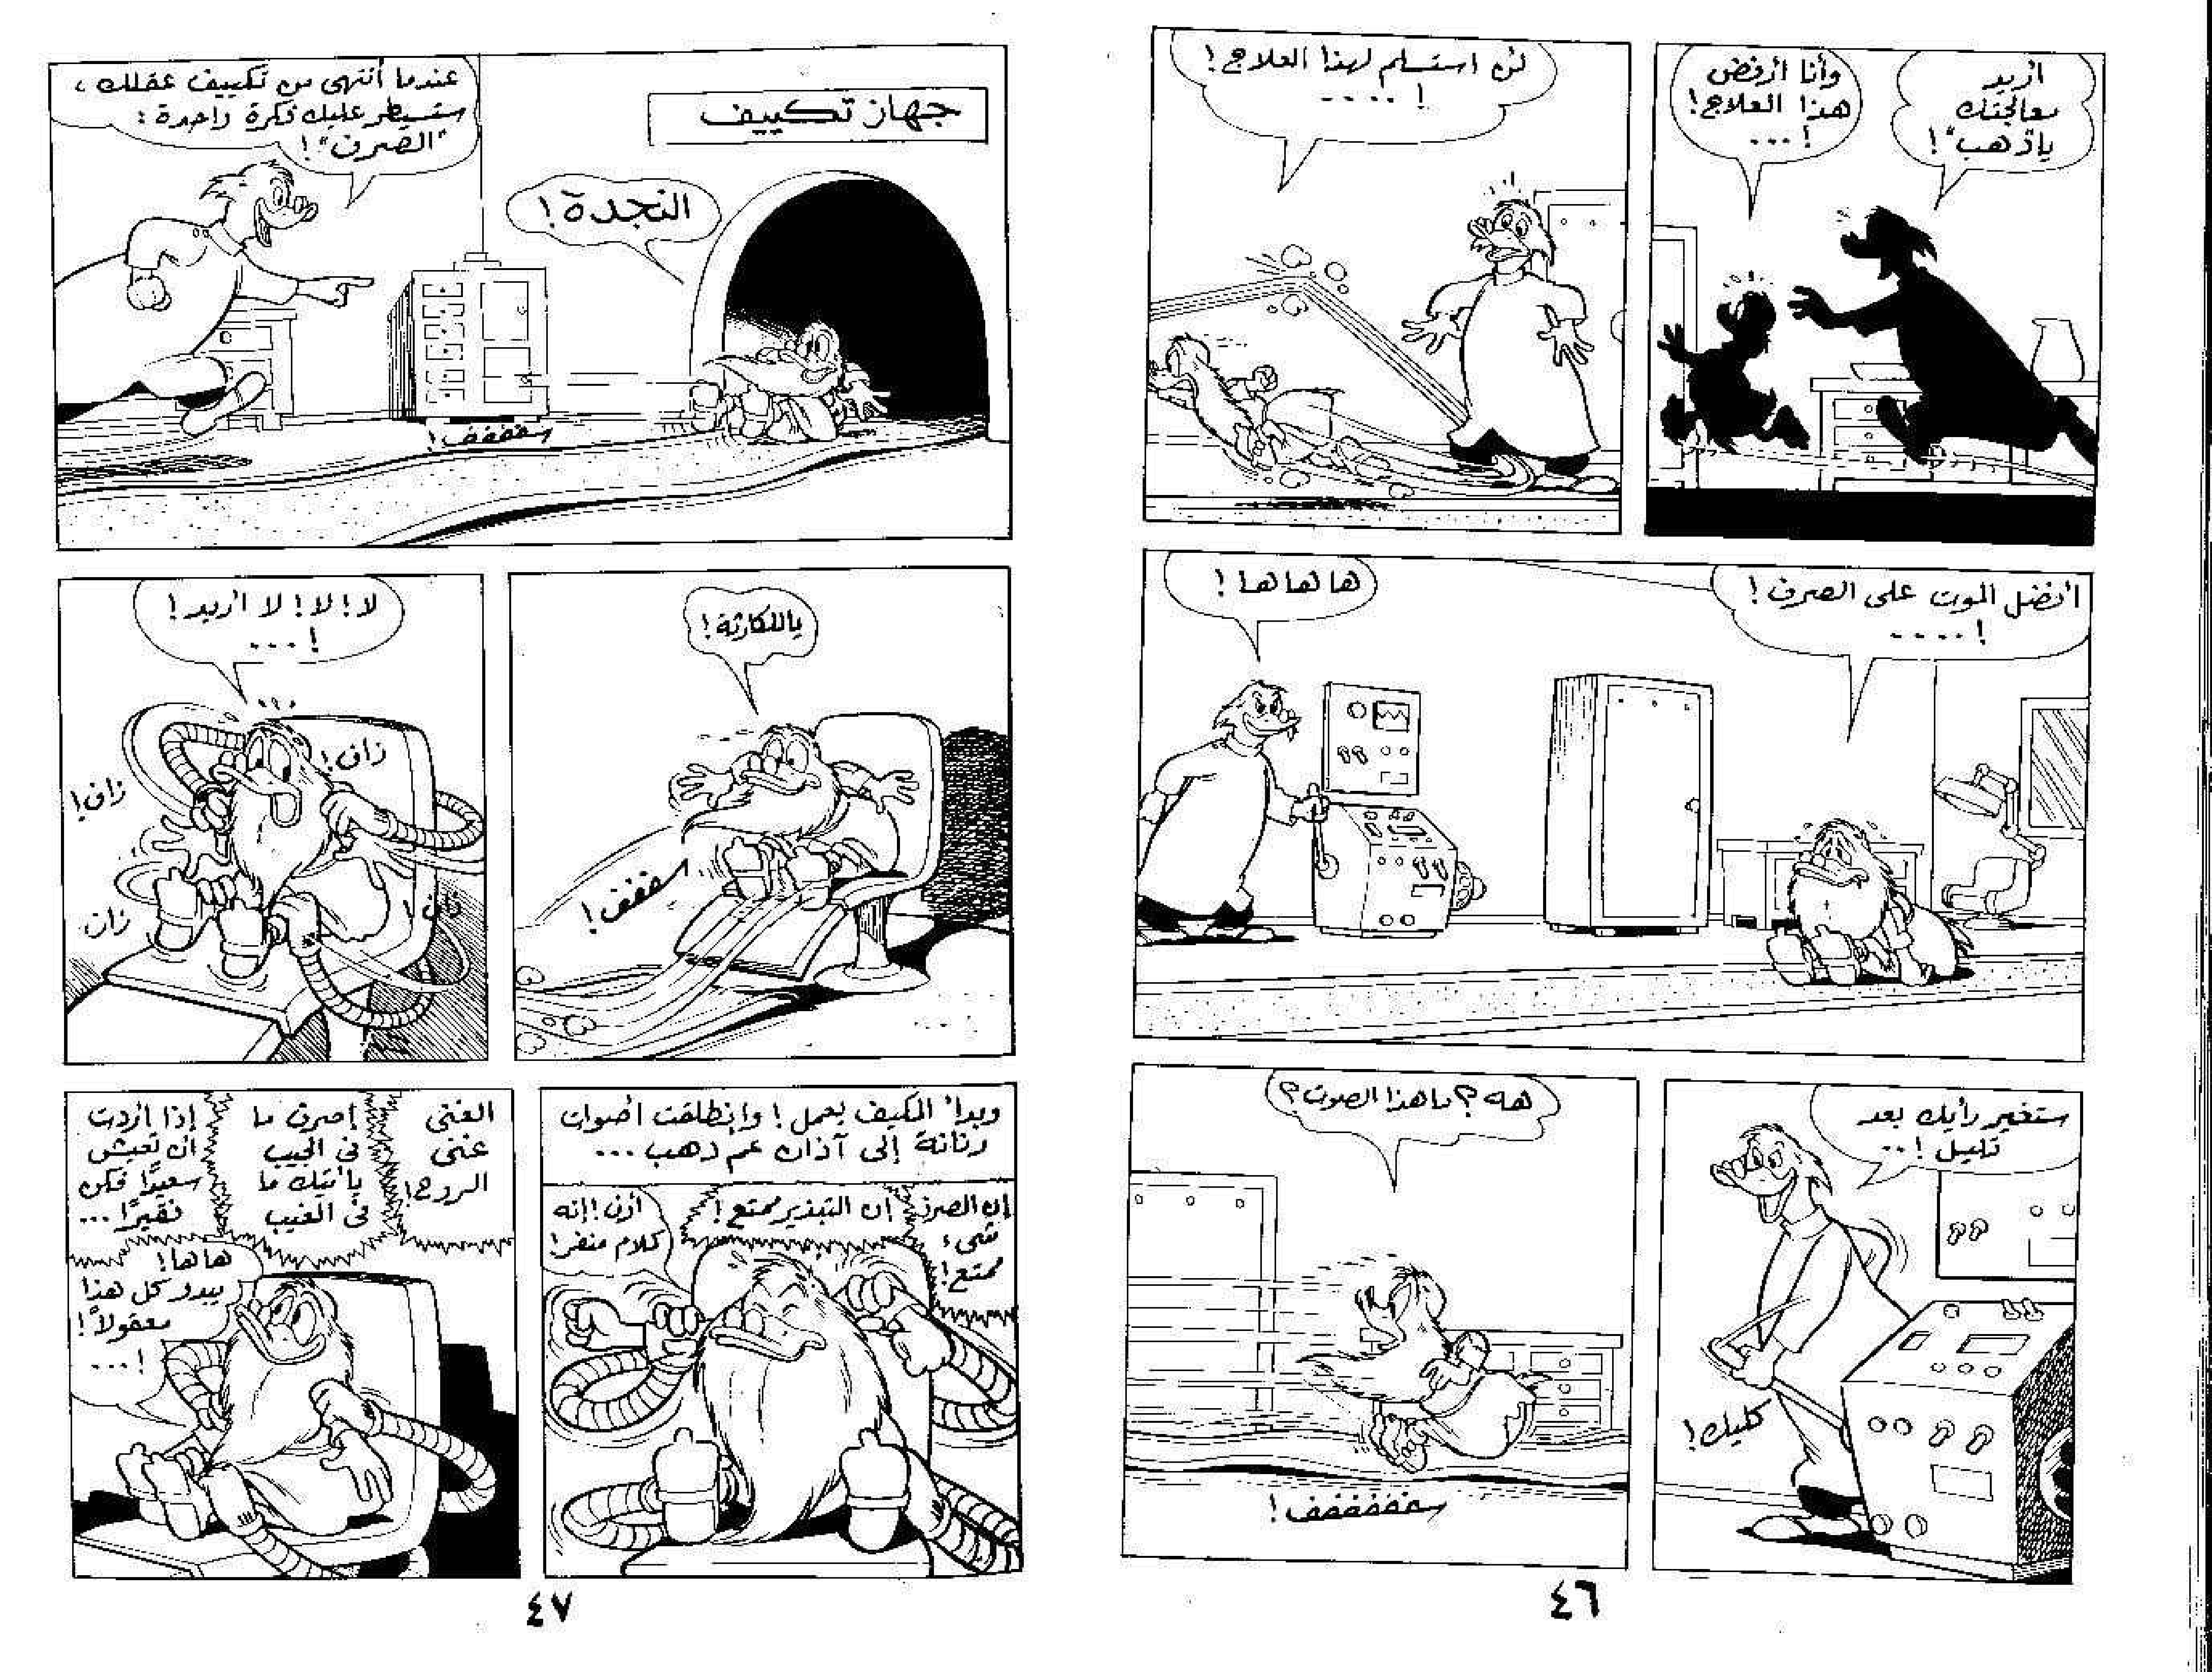 أريد
معالجتك
يا"ذهب"!
وأنا أرفض
هذا العلاج!
...!
لن استسلم لهذا العلاج!
....!
أفضل الموت على الصرف!
....!
ها ها ها!
ستغير رأيك بعد
قليل!..
كليك!
هه؟ ما هذا الصوت؟
سففففففف!
٤٦
جهاز تكييف
النجدة!
عندما أنتهى من تكييف عقلك،
ستسيطر عليك فكرة واحدة:
"الصرف"!
سففففف!
ياللكارثة!
سفففف!
لا! لا! لا أريد!
...!
زان!
زان!
زان!
زان!
وبدأ المكيف يعمل! وانطلقت أصوات
رنانة إلى آذان عم دهب...
إن الصرف
شىء
ممتع!
إن التبذير ممتع!
أزن! إنه
كلام منفر!
الغنى
غنى
الروح!
إصرف ما
فى الجيب
يأتيك ما
فى الغيب
إذا أردت
أن تعيش
سعيدًا فكن
فقيرًا...
هاها!
يبدو كل هذا
معقولاً!
...!
٤٧